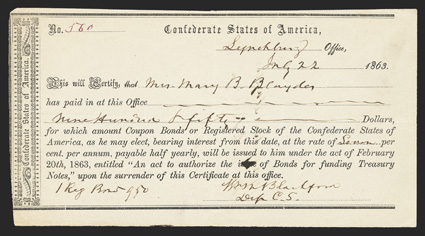 No. 560
Confederate States of America,
Lynchburg Office,
July 22 1863.
This will Certify, that Mrs. Mary B. Blaydes
has paid in at this Office
Nine Hundred & fifty Dollars,
for which amount Coupon Bonds or Registered Stock of the Confederate States of
America, as he may elect, bearing interest from this date, at the rate of Seven per
cent. per annum, payable half yearly, will be issued to him under the act of February
20th, 1863, entitled "An act to authorize the issue of Bonds for funding Treasury
Notes," upon the surrender of this Certificate at this office.
1 Reg Bond 950
Blackford
Dep C.S.
Confederate States of America.